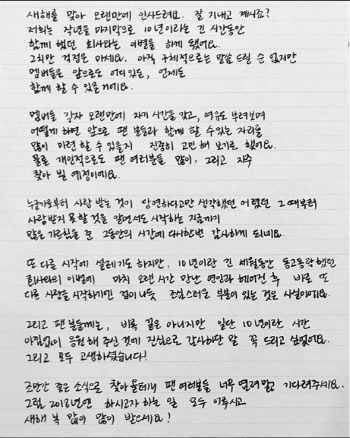 새해를 맞아 오랜만에 인사드려요. 잘 지내고 계시죠?
저희는 작년을 마지막으로 10년이라는 긴 시간동안
함께 했던 회사와는 이별을 하게 됐어요.
그치만 걱정은 마세요. 아직 구체적으로는 말씀 드릴 순 없지만
멤버들은 앞으로도 어디있든, 언제든
함께 할 수 있을거예요.
멤버들 각자 오랜만에 자기 시간을 갖고, 여유도 부려보며
어떻게 하면 앞으로 팬 분들과 함께 할 수 있는 자리를
많이 마련 할 수 있을지 진중히 고민해 보기로 했어요.
물론 개인적으로도 팬 여러분들 많이, 그리고 자주
찾아 뵐 예정이에요.
누군가로부터 사랑 받는 것이 당연하다고만 생각했던 어렸던 그 때부터
사랑받지 못 할 것을 알면서도 시작하는 지금까지
많은 가르침을 준 그동안의 시간에 다시한번 감사하게 되네요.
또 다른 시작에 설레기도 하지만, 10년이란 긴 세월동안 동고동락했던
회사와의 이별에 마치 오랜 시간 만난 연인과 헤어진 후 바로 또
다른 사랑을 시작하기엔 겁이 나듯 조심스러운 부분이 있는 것은 사실이에요.
그리고 팬 분들께는, 비록 끝은 아니지만 일단 10년이란 시간
아낌없이 응원해 주신 것에 진심으로 감사하단 말 꼭 드리고 싶었어요.
그리고 모두 고생하셨습니다!
조만간 좋은 소식으로 찾아올테니 팬 여러분들 너무 염려말고 기다려주세요.
그럼 2018년엔 하시고자 하는 일 모두 이루시고
새해 복 많이 많이 받으세요!